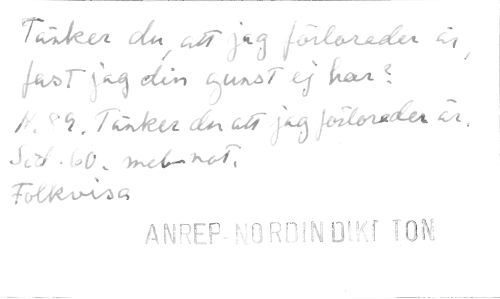 Tänker du, att jag förlorader är,
fast jag din gunst ej har?
N. 89. Tänker du att jag förlorader är.
Söd. 60. mel-not.
Folkvisa
ANREP-NORDIN DIKT TON